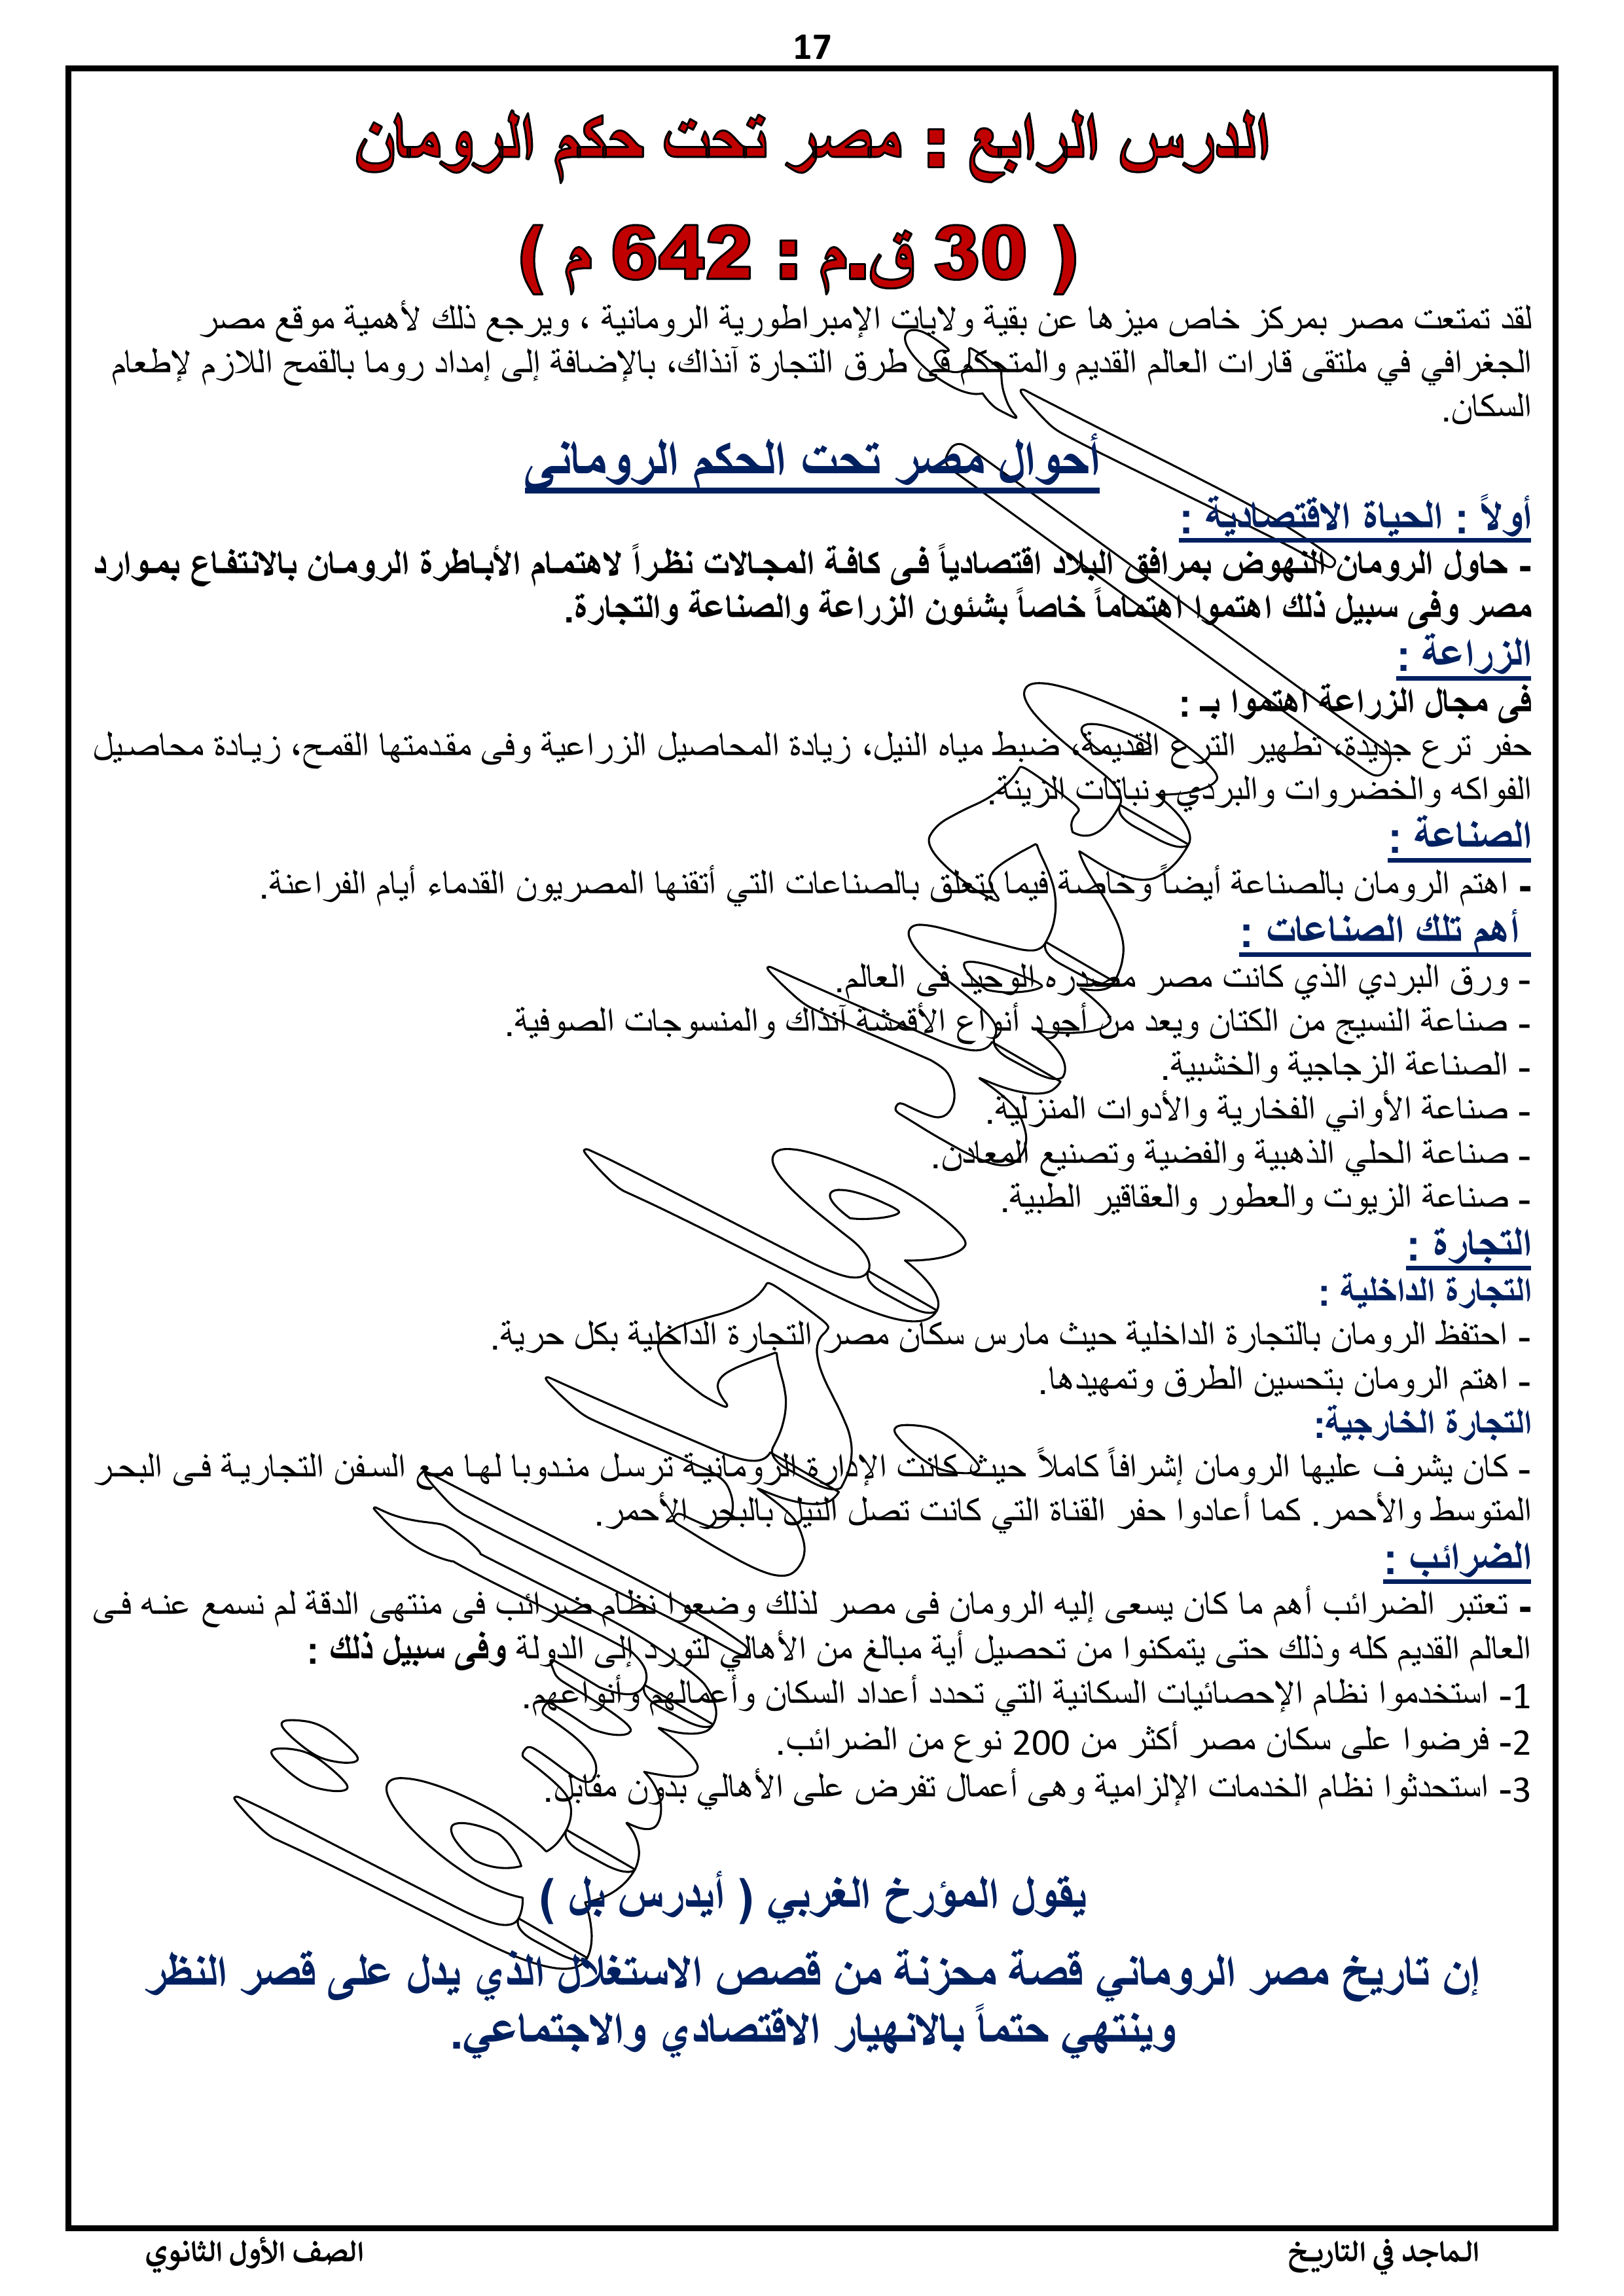 17
الدرس الرابع : مصر تحت حكم الرومان
( 30 ق.م : 642 م )
لقد تمتعت مصر بمركز خاص ميزها عن بقية ولايات الإمبراطورية الرومانية ، ويرجع ذلك لأهمية موقع مصر
الجغرافي في ملتقى قارات العالم القديم والمتحكم فى طرق التجارة آنذاك، بالإضافة إلى إمداد روما بالقمح اللازم لإطعام
السكان.
أحوال مصر تحت الحكم الرومانى
أولاً : الحياة الاقتصادية :
- حاول الرومان النهوض بمرافق البلاد اقتصادياً فى كافة المجالات نظراً لاهتمام الأباطرة الرومان بالانتفاع بموارد
مصر وفى سبيل ذلك اهتموا اهتماماً خاصاً بشئون الزراعة والصناعة والتجارة.
الزراعة :
فى مجال الزراعة اهتموا بـ :
حفر ترع جديدة، تطهير الترع القديمة، ضبط مياه النيل، زيادة المحاصيل الزراعية وفى مقدمتها القمح، زيادة محاصيل
الفواكه والخضروات والبردي ونباتات الزينة.
الصناعة :
- اهتم الرومان بالصناعة أيضاً وخاصة فيما يتعلق بالصناعات التي أتقنها المصريون القدماء أيام الفراعنة.
أهم تلك الصناعات :
- ورق البردي الذي كانت مصر مصدره الوحيد فى العالم.
- صناعة النسيج من الكتان ويعد من أجود أنواع الأقمشة آنذاك والمنسوجات الصوفية.
- الصناعة الزجاجية والخشبية.
- صناعة الأواني الفخارية والأدوات المنزلية.
- صناعة الحلي الذهبية والفضية وتصنيع المعادن.
- صناعة الزيوت والعطور والعقاقير الطبية.
التجارة :
التجارة الداخلية :
- احتفظ الرومان بالتجارة الداخلية حيث مارس سكان مصر التجارة الداخلية بكل حرية.
- اهتم الرومان بتحسين الطرق وتمهيدها.
التجارة الخارجية:
- كان يشرف عليها الرومان إشرافاً كاملاً حيث كانت الإدارة الرومانية ترسل مندوبا لها مع السفن التجارية فى البحر
المتوسط والأحمر. كما أعادوا حفر القناة التي كانت تصل النيل بالبحر الأحمر.
الضرائب :
- تعتبر الضرائب أهم ما كان يسعى إليه الرومان فى مصر لذلك وضعوا نظام ضرائب فى منتهى الدقة لم نسمع عنه فى
العالم القديم كله وذلك حتى يتمكنوا من تحصيل أية مبالغ من الأهالي لتورد إلى الدولة وفى سبيل ذلك :
1- استخدموا نظام الإحصائيات السكانية التي تحدد أعداد السكان وأعمالهم وأنواعهم.
2- فرضوا على سكان مصر أكثر من 200 نوع من الضرائب.
3- استحدثوا نظام الخدمات الإلزامية وهى أعمال تفرض على الأهالي بدون مقابل.
يقول المؤرخ الغربي ( أيدرس بل )
إن تاريخ مصر الروماني قصة محزنة من قصص الاستغلال الذي يدل على قصر النظر
وينتهي حتماً بالانهيار الاقتصادي والاجتماعي.
الماجد في التاريخ
الصف الأول الثانوي